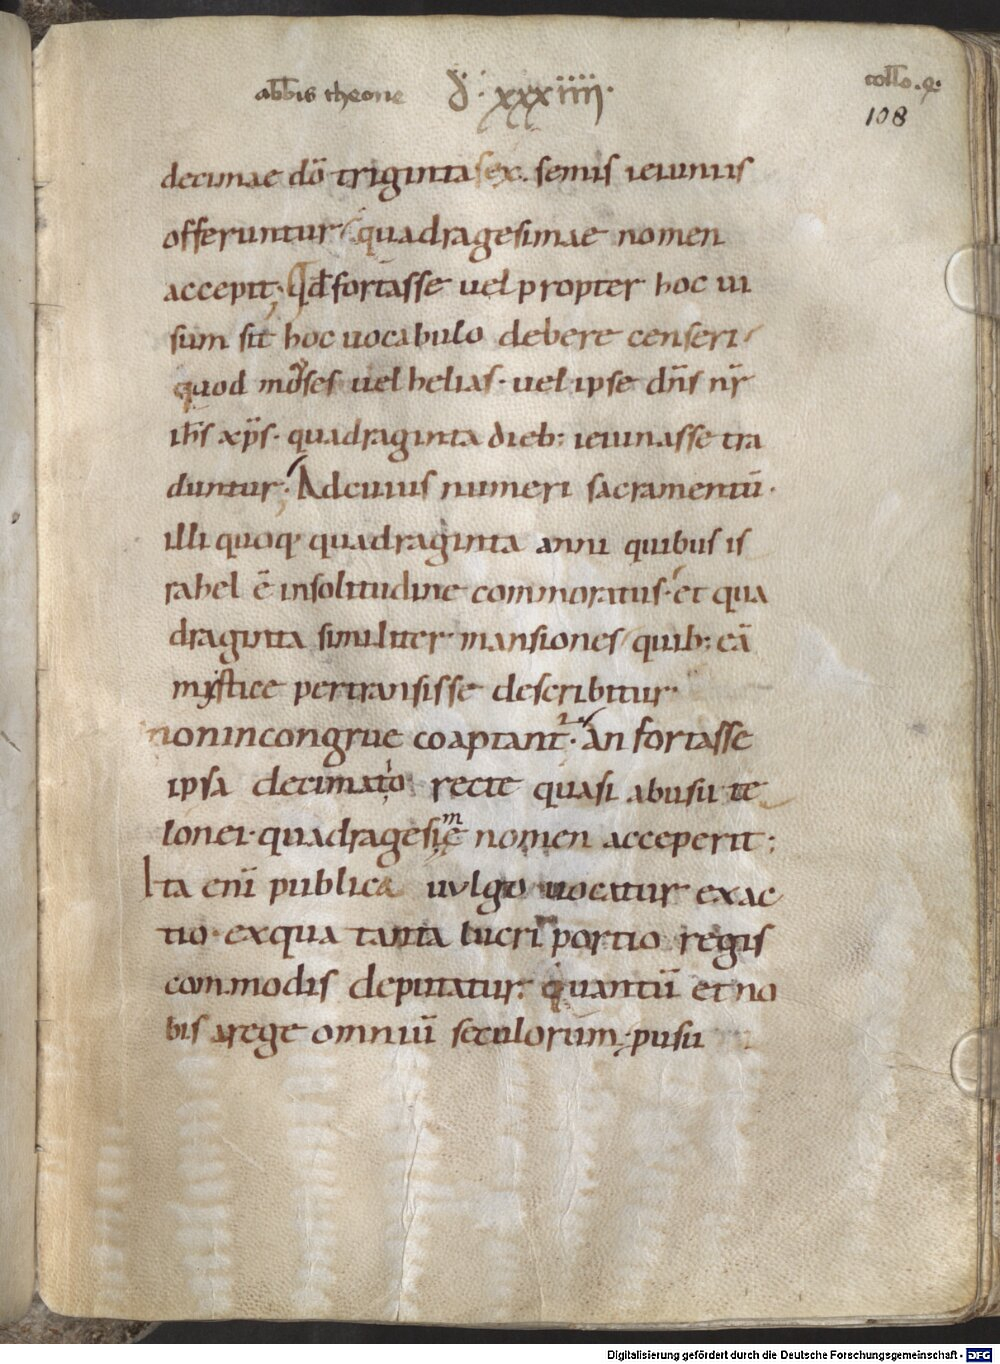 abb̄is theone đ· xxxiiii· coll̄o. q·
108
decimae dō triginta sex. semis ieiuniis
offeruntur quadragesimae nomen
accepit; Qđ fortasse uel propter hoc ui
sum sit hoc uocabulo debere censeri
quod moyses uel helias· uel ipse dn̄s nr̄
ih̄s xp̄s· quadraginta dieb: ieiunasse tra
duntur; Ad cuius numeri sacramentū·
illi quoq· quadraginta anni quibus is
rahel ē in solitudine commoratus· et qua
draginta similiter mansiones quib: eā
mystice pertransisse describitur·
non incongrue coaptant᷑· an fortasse
ipsa decimatio recte quasi ab usu te
lonei· quadragesimę nomen acceperit;
Ita enī publica uulgo uocatur exac
tio· ex qua tanta lucri portio regis
commodis deputatur· quantū et no
bis a rege omniū seculorum· pusu
Digitalisierung gefördert durch die Deutsche Forschungsgemeinschaft - DFG